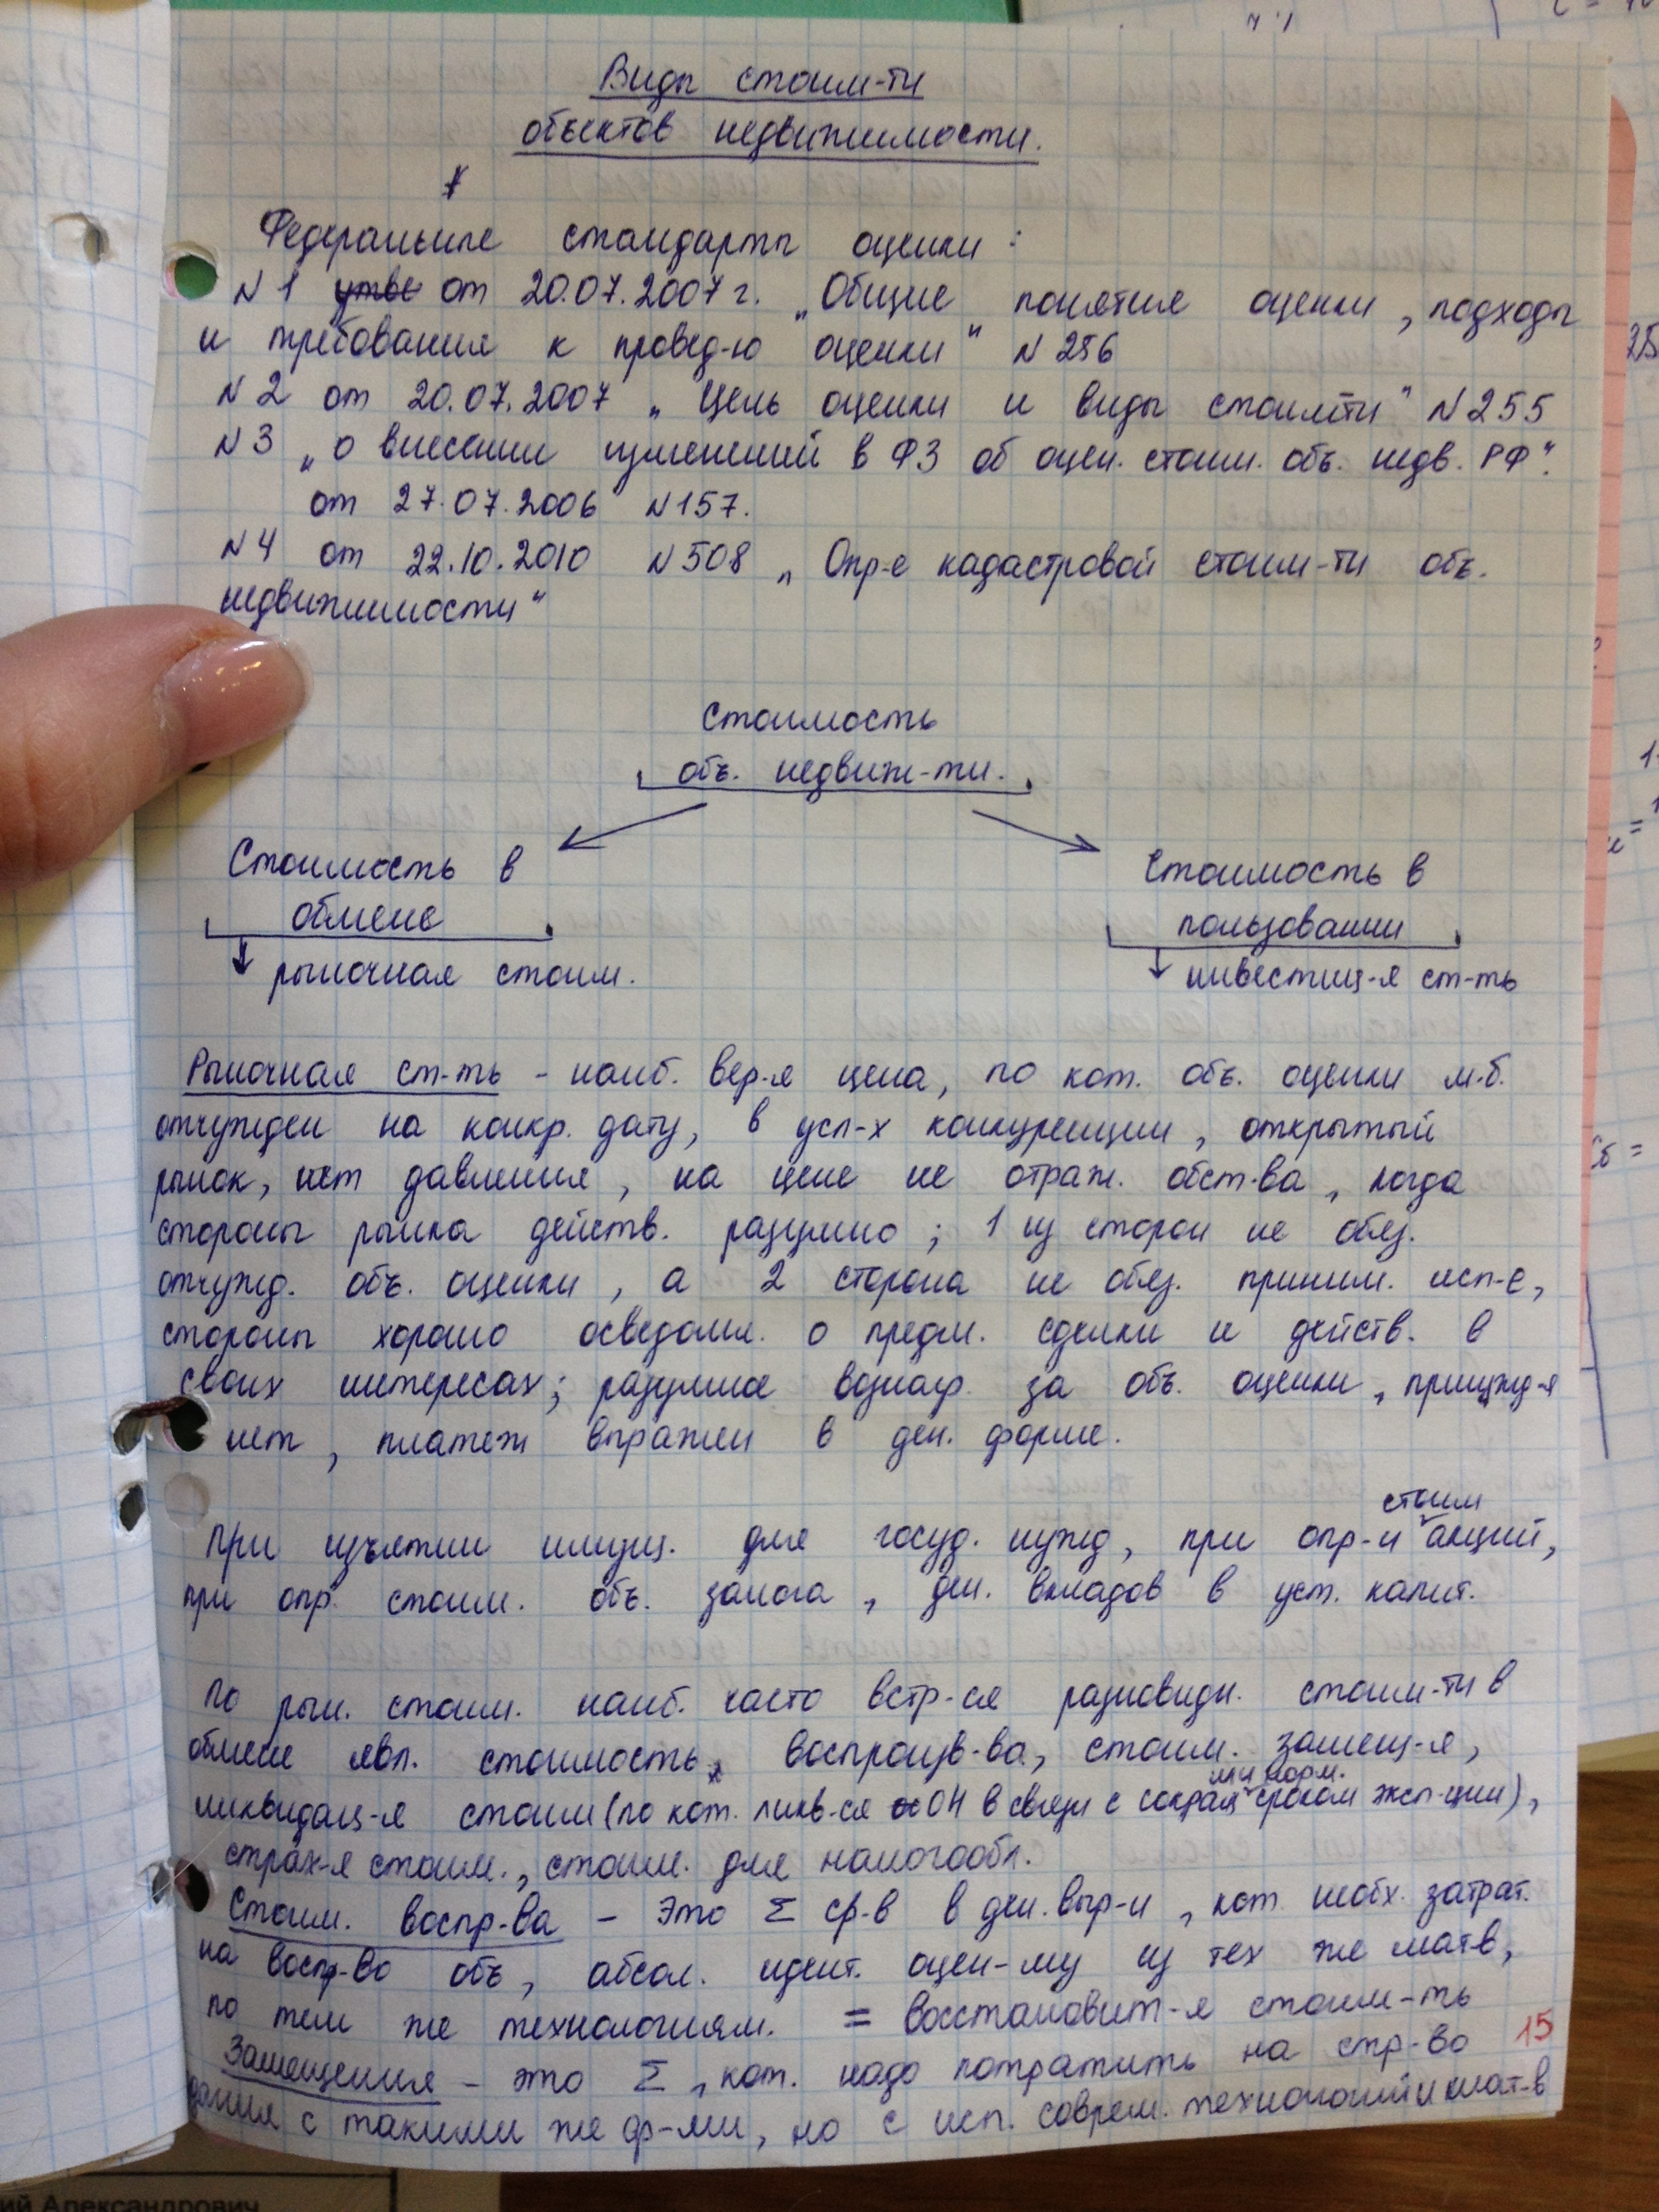 Виды стоим-ти
объектов недвижимости.
Федеральные стандарты оценки:
N1 от 20.07.2007г. „Общие понятия оценки, подходы
и требования к провед-ю оценки" N256
N2 от 20.07.2007 „Цель оценки и виды стоим-ти" N255
N3 „о внесении изменений в ФЗ об оцен. стоим. объ. недв. РФ".
от 27.07.2006 N157.
N4 от 22.10.2010 N508 „Опр-е кадастровой стоим-ти объ.
недвижимости"
Стоимость
объ. недвиж-ти.
Стоимость в
обмене
рыночная стоим.
Стоимость в
пользовании
инвестиц-я ст-ть
Рыночная ст-ть - наиб. вер-я цена, по кот. объ. оценки м.б.
отчужден на конкр. дату, в усл-х конкуренции, открытый
рынок, нет давления, на цене не отраж. обст-ва, когда
стороны рынка действ. разумно; 1 из сторон не обяз.
отчужд. объ. оценки, а 2 сторона не обяз. приним. исп-е,
стороны хорошо осведомл. о предм. сделки и действ. в
своих интересах; разумное вознагр. за объ. оценки, принужд-я
нет, платеж выражен в ден. форме.
При изъятии имущ. для госуд. нужд, при опр-и стоим акций,
при опр. стоим. объ. залога, ден. вкладов в уст. капит.
По рын. стоим. наиб. часто встр-ся разновидн. стоим-ти в
обмене явл. стоимость воспроизв-ва, стоим. замещ-я,
ликвидац-я стоим (по кот. ликв-ся ОН в связи с сокращ норм. сроком эксп-ции),
страх-я стоим., стоим. для налогообл.
Стоим. воспр-ва - это Σ ср-в в ден. выр-и, кот. необх. затрат.
на воспр-во объ, абсол. идент. оцен-му из тех же мат-в,
по тем же технологиям. = восстановит-я стоим-ть
Замещения - это Σ, кот. надо потратить на стр-во 15
здания с такими же ф-ми, но с исп. соврем. технологий и мат-в
ий Александрович